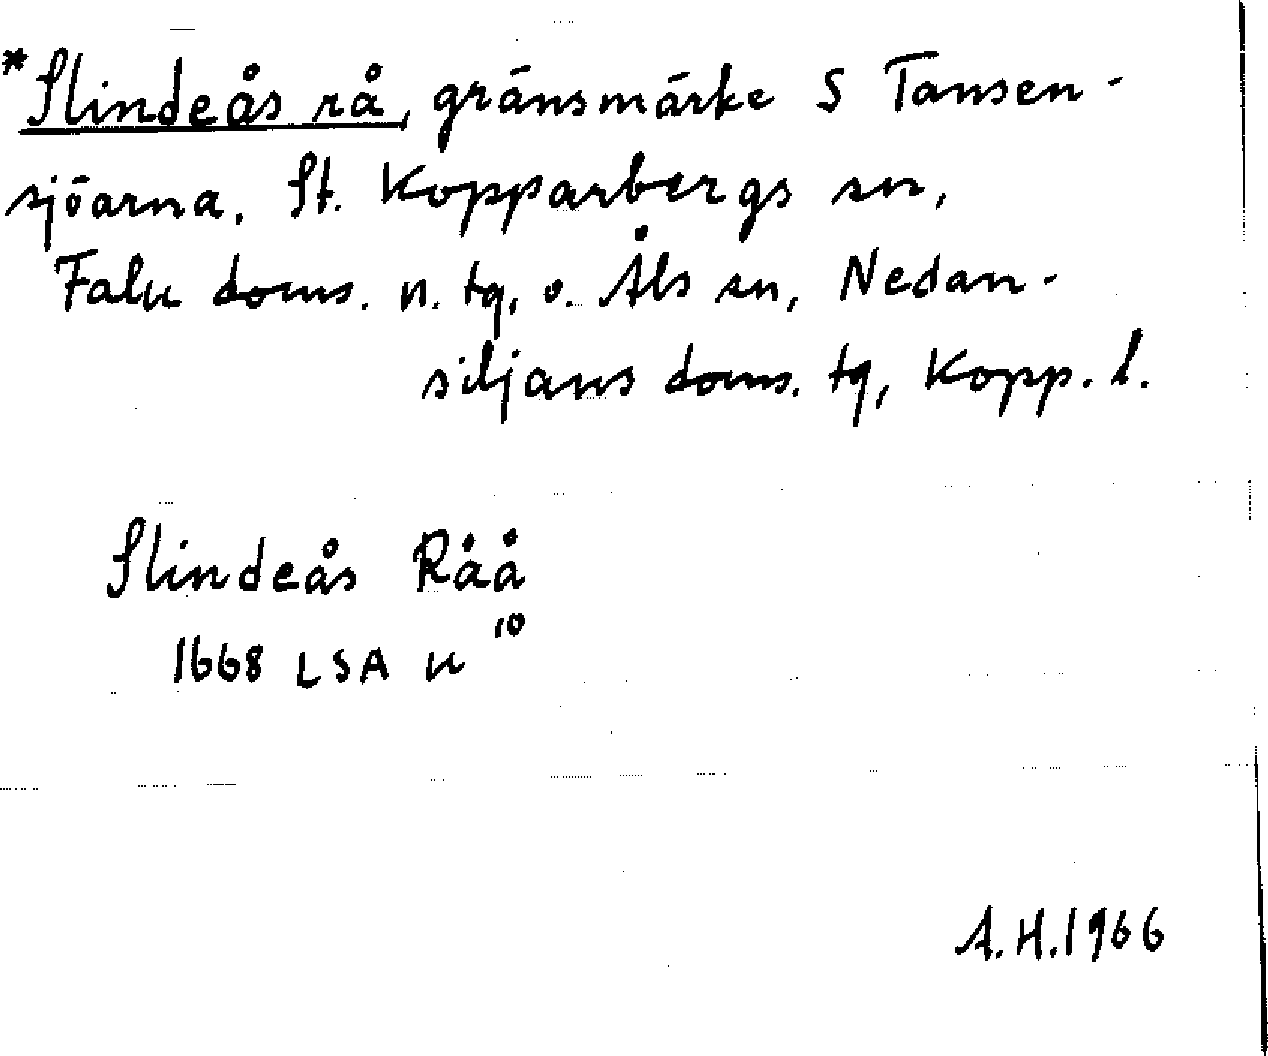 *Slindeås rå, gränsmärke S Tansen-
sjöarna, St. Kopparbergs sn,
Falu doms. n. tg, o. Åls sn, Nedan-
siljans doms. tg, Kopp. l.
Slindeås Råå
1668 LSA u 10
A.H.1966